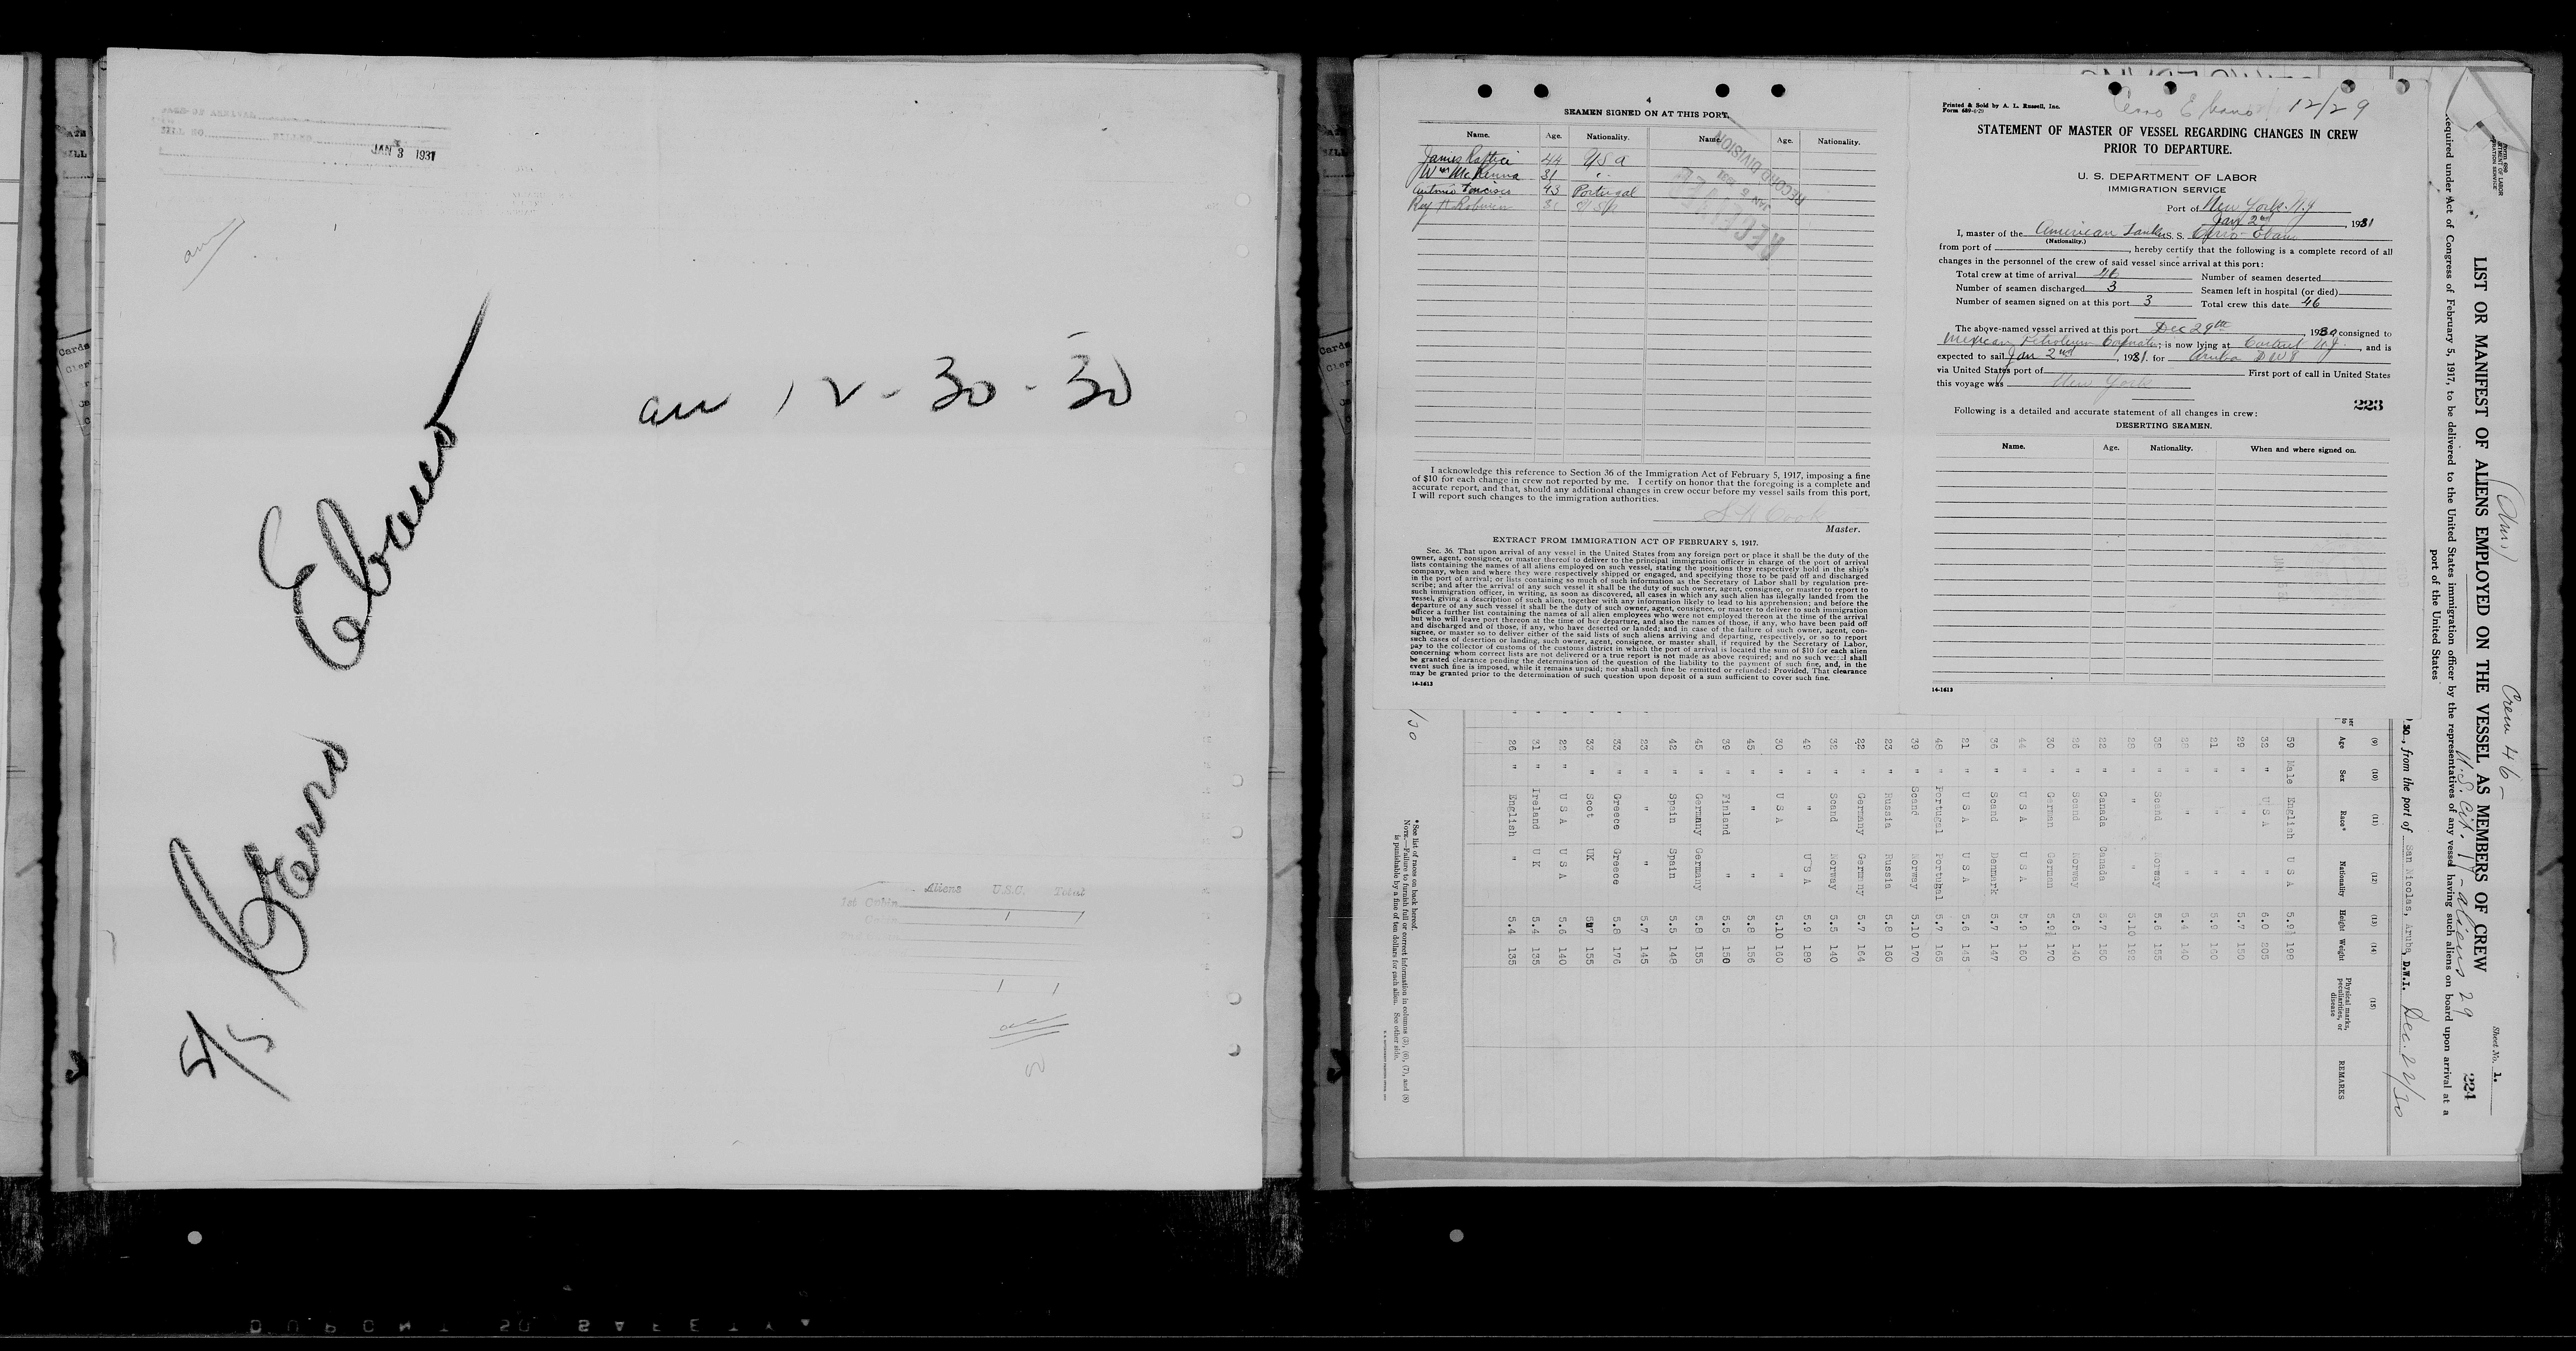 JAN 3 1931
arr 12-30-30
S/S Cerro Ebano
Aliens U.S.C. Total
1st Cabin
4
SEAMEN SIGNED ON AT THIS PORT.
Name. Age. Nationality. Name. Age. Nationality.
James 44 U S A
Wm McKenna 31 "
Antonio 43 Portugal
Ray H
RECEIVED
JAN 5 1931
RECORD DIVISION
I acknowledge this reference to Section 36 of the Immigration Act of February 5, 1917, imposing a fine
of $10 for each change in crew not reported by me. I certify on honor that the foregoing is a complete and
accurate report, and that, should any additional changes in crew occur before my vessel sails from this port,
I will report such changes to the immigration authorities.
Cook
Master.
EXTRACT FROM IMMIGRATION ACT OF FEBRUARY 5, 1917.
Sec. 36. That upon arrival of any vessel in the United States from any foreign port or place it shall be the duty of the
owner, agent, consignee, or master thereof to deliver to the principal immigration officer in charge of the port of arrival
lists containing the names of all aliens employed on such vessel, stating the positions they respectively hold in the ship's
company, when and where they were respectively shipped or engaged, and specifying those to be paid off and discharged
in the port of arrival; or lists containing so much of such information as the Secretary of Labor shall by regulation pre-
scribe; and after the arrival of any such vessel it shall be the duty of such owner, agent, consignee, or master to report to
such immigration officer, in writing, as soon as discovered, all cases in which any such alien has illegally landed from the
vessel, giving a description of such alien, together with any information likely to lead to his apprehension; and before the
departure of any such vessel it shall be the duty of such owner, agent, consignee, or master to deliver to such immigration
officer a further list containing the names of all alien employees who were not employed thereon at the time of the arrival
but who will leave port thereon at the time of her departure, and also the names of those, if any, who have been paid off
and discharged and of those, if any, who have deserted or landed; and in case of the failure of such owner, agent, con-
signee, or master so to deliver either of the said lists of such aliens arriving and departing, respectively, or so to report
such cases of desertion or landing, such owner, agent, consignee, or master shall, if required by the Secretary of Labor,
pay to the collector of customs of the customs district in which the port of arrival is located the sum of $10 for each alien
concerning whom correct lists are not delivered or a true report is not made as above required; and no such vessel shall
be granted clearance pending the determination of the question of the liability to the payment of such fine, and, in the
event such fine is imposed, while it remains unpaid; nor shall such fine be remitted or refunded: Provided, That clearance
may be granted prior to the determination of such question upon deposit of a sum sufficient to cover such fine.
14-1613
Printed & Sold by A. L. Russell, Inc.
Form 689-1-29
Cerro Ebano 12/29
STATEMENT OF MASTER OF VESSEL REGARDING CHANGES IN CREW
PRIOR TO DEPARTURE.
U. S. DEPARTMENT OF LABOR
IMMIGRATION SERVICE
Port of New York. N.Y
Jan 2nd, 1931
I, master of the American Tanker S. S. Cerro-Ebano
(Nationality.)
from port of , hereby certify that the following is a complete record of all
changes in the personnel of the crew of said vessel since arrival at this port:
Total crew at time of arrival 46 Number of seamen deserted
Number of seamen discharged 3 Seamen left in hospital (or died)
Number of seamen signed on at this port 3 Total crew this date 46
The above-named vessel arrived at this port Dec 29th, 1930 consigned to
Mexican Petroleum Corporation; is now lying at Carteret N.J., and is
expected to sail Jan 2nd, 1931. for Aruba D W I
via United States port of First port of call in United States
this voyage was New York
223
Following is a detailed and accurate statement of all changes in crew:
DESERTING SEAMEN.
Name. Age. Nationality. When and where signed on.
14-1613
Crew 46 -
Sheet No. 1.
LIST OR MANIFEST OF ALIENS EMPLOYED ON THE VESSEL AS MEMBERS OF CREW
U.S. Cit. 17 - aliens 29
224
Required under Act of Congress of February 5, 1917, to be delivered to the United States immigration officer by the representatives of any vessel having such aliens on board upon arrival at a
port of the United States
30, from the port of San Nicolas, Aruba, D.W.I. Dec. 22/30
(9) (10) (11) (12) (13) (14) (15)
Age Sex Race* Nationality Height Weight Physical marks, peculiarities, or disease REMARKS
59 Male English U S A 5.9½ 198
32 " U S A " 6.0 205
29 " " " 5.7 150
21 " " " 5.9 160
28 " " " 5.4 140
38 " Scand Norway 5.6 155
28 " " " 5.10 192
22 " Canada Canada 5.7 150
26 " Scand Norway 5.6 140
30 " German German 5.9½ 170
44 " U S A U S A 5.9 160
36 " Scand Denmark 5.7 147
21 " U S A U S A 5.6 145
48 " Portugal Portugal 5.7 165
39 " Scand Norway 5.10 170
23 " Russia Russia 5.8 160
22 " Germany Germany 5.7 164
32 " Scand Norway 5.5 140
49 " " U S A 5.9 189
30 " U S A " 5.10 160
45 " " " 5.8 156
39 " Finland " 5.5 150
45 " Germany Germany 5.8 155
42 " Spain Spain 5.5 148
23 " " " 5.7 145
33 " Greece Greece 5.8 176
33 " Scot UK 5.7 155
22 " U S A U S A 5.6 140
31 " Ireland U K 5.4 135
26 " English " 5.4 135
*See list of races on back hereof.
NOTE.—Failure to furnish full or correct information in columns (3), (6), (7), and (8)
is punishable by a fine of ten dollars for each alien. See other side.
DUPONT SAFETY